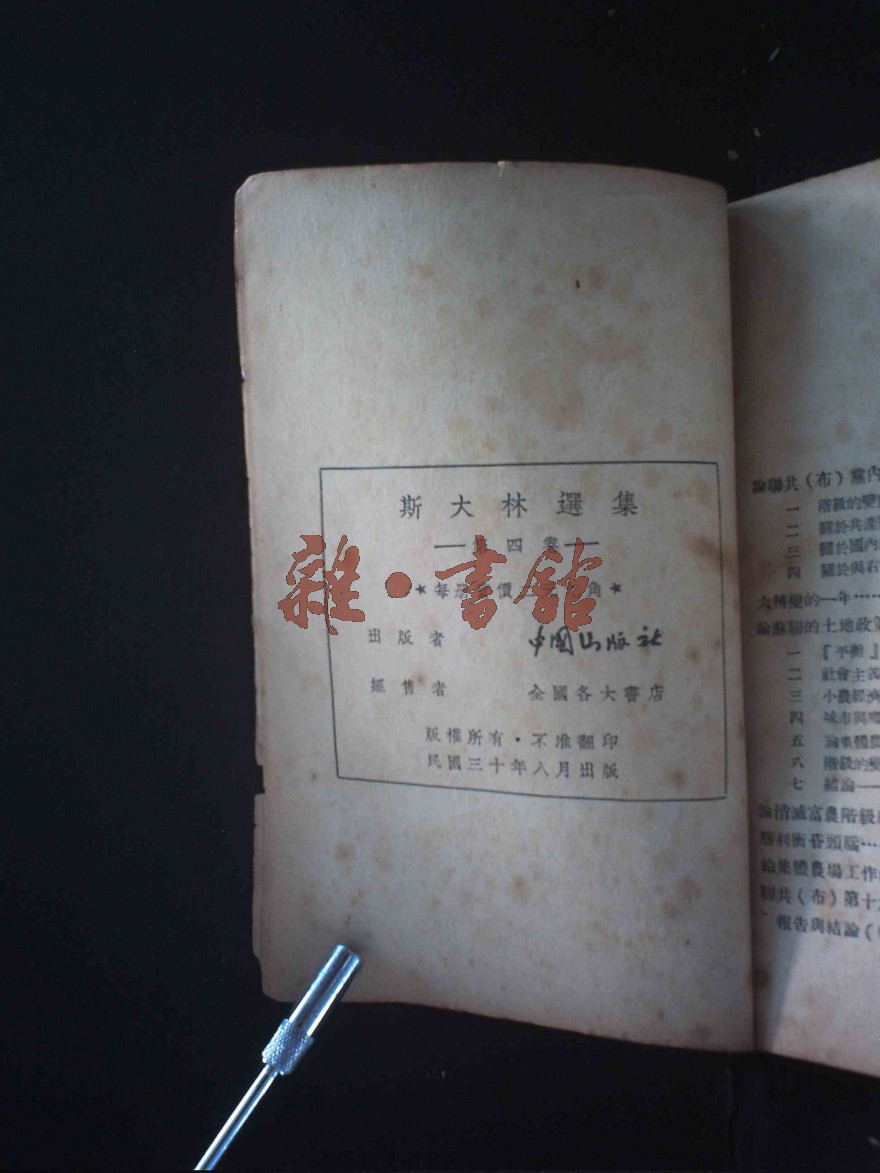 斯大林選集
——第四卷——
★每册
價
角★
出版者 中國出版社
經售者 全國各大書店
版權所有·不准翻印
民國三十年八月出版
雜·書館
論聯共（布）黨內
一 階級的變
二 關於共產
三 關於國內
四 關於與右
大轉變的一年……
論蘇聯的土地政策
一 『平衡』
二 社會主義
三 小農經濟
四 城市與
五 論集體農
六 階級的變
七 結論——
論消滅富農階級
勝利衝昏頭腦…
給集體農場工作
聯共（布）第十
報告與結論（